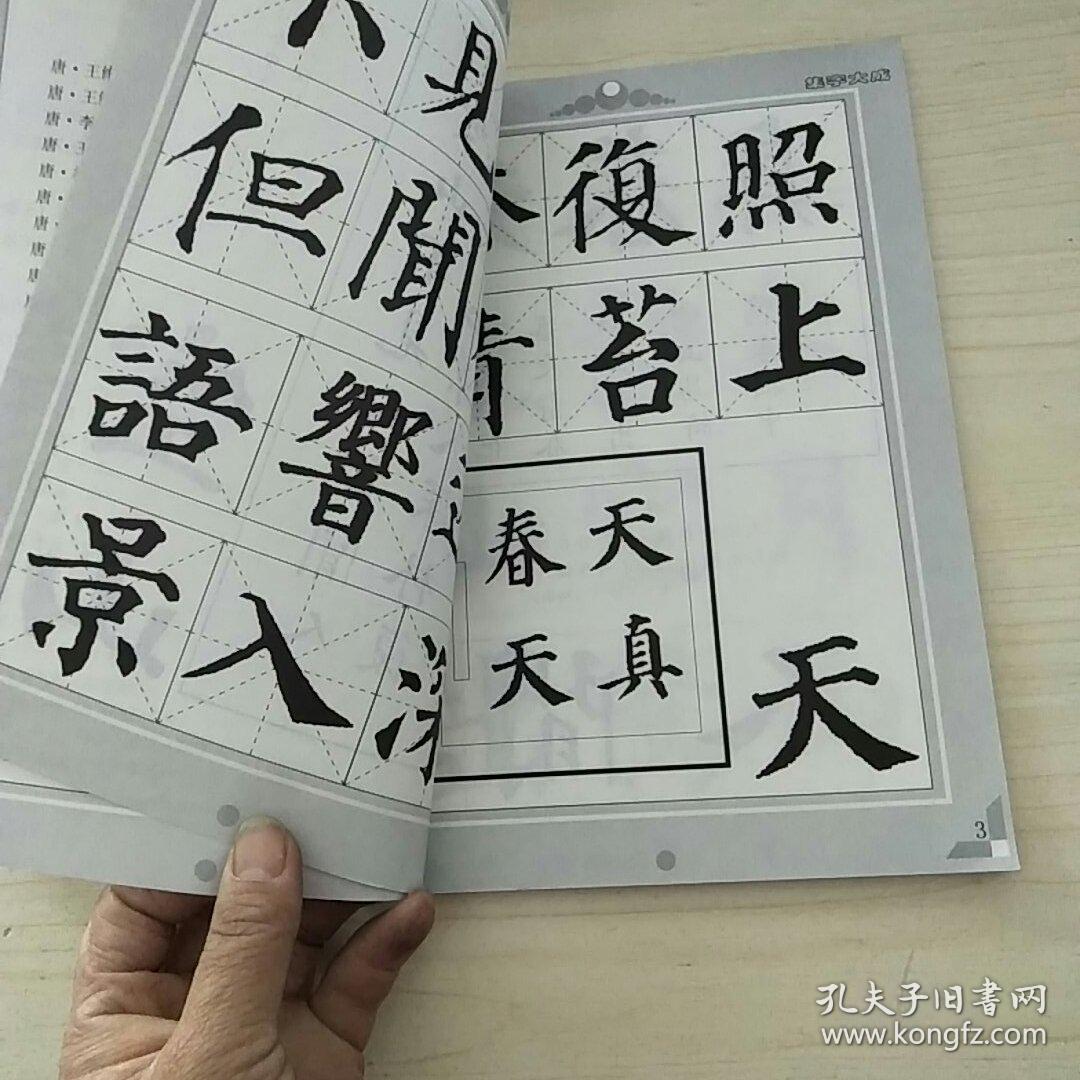 唐·王
唐·王
唐·李
唐·王
唐·
唐·
唐·
唐·
見
但聞
語響
景入深
集字大成
復照
青苔上
春天
天真
天
3
孔夫子旧書网
www.kongfz.com